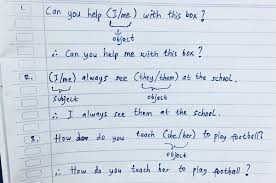 1. Can you help (I/me) with this box?
object
∴ Can you help me with this box?
2. (I/me) always see (they/them) at the school.
subject object
∴ I always see them at the school.
3. How do you teach (she/her) to play football?
object
∴ How do you teach her to play football?